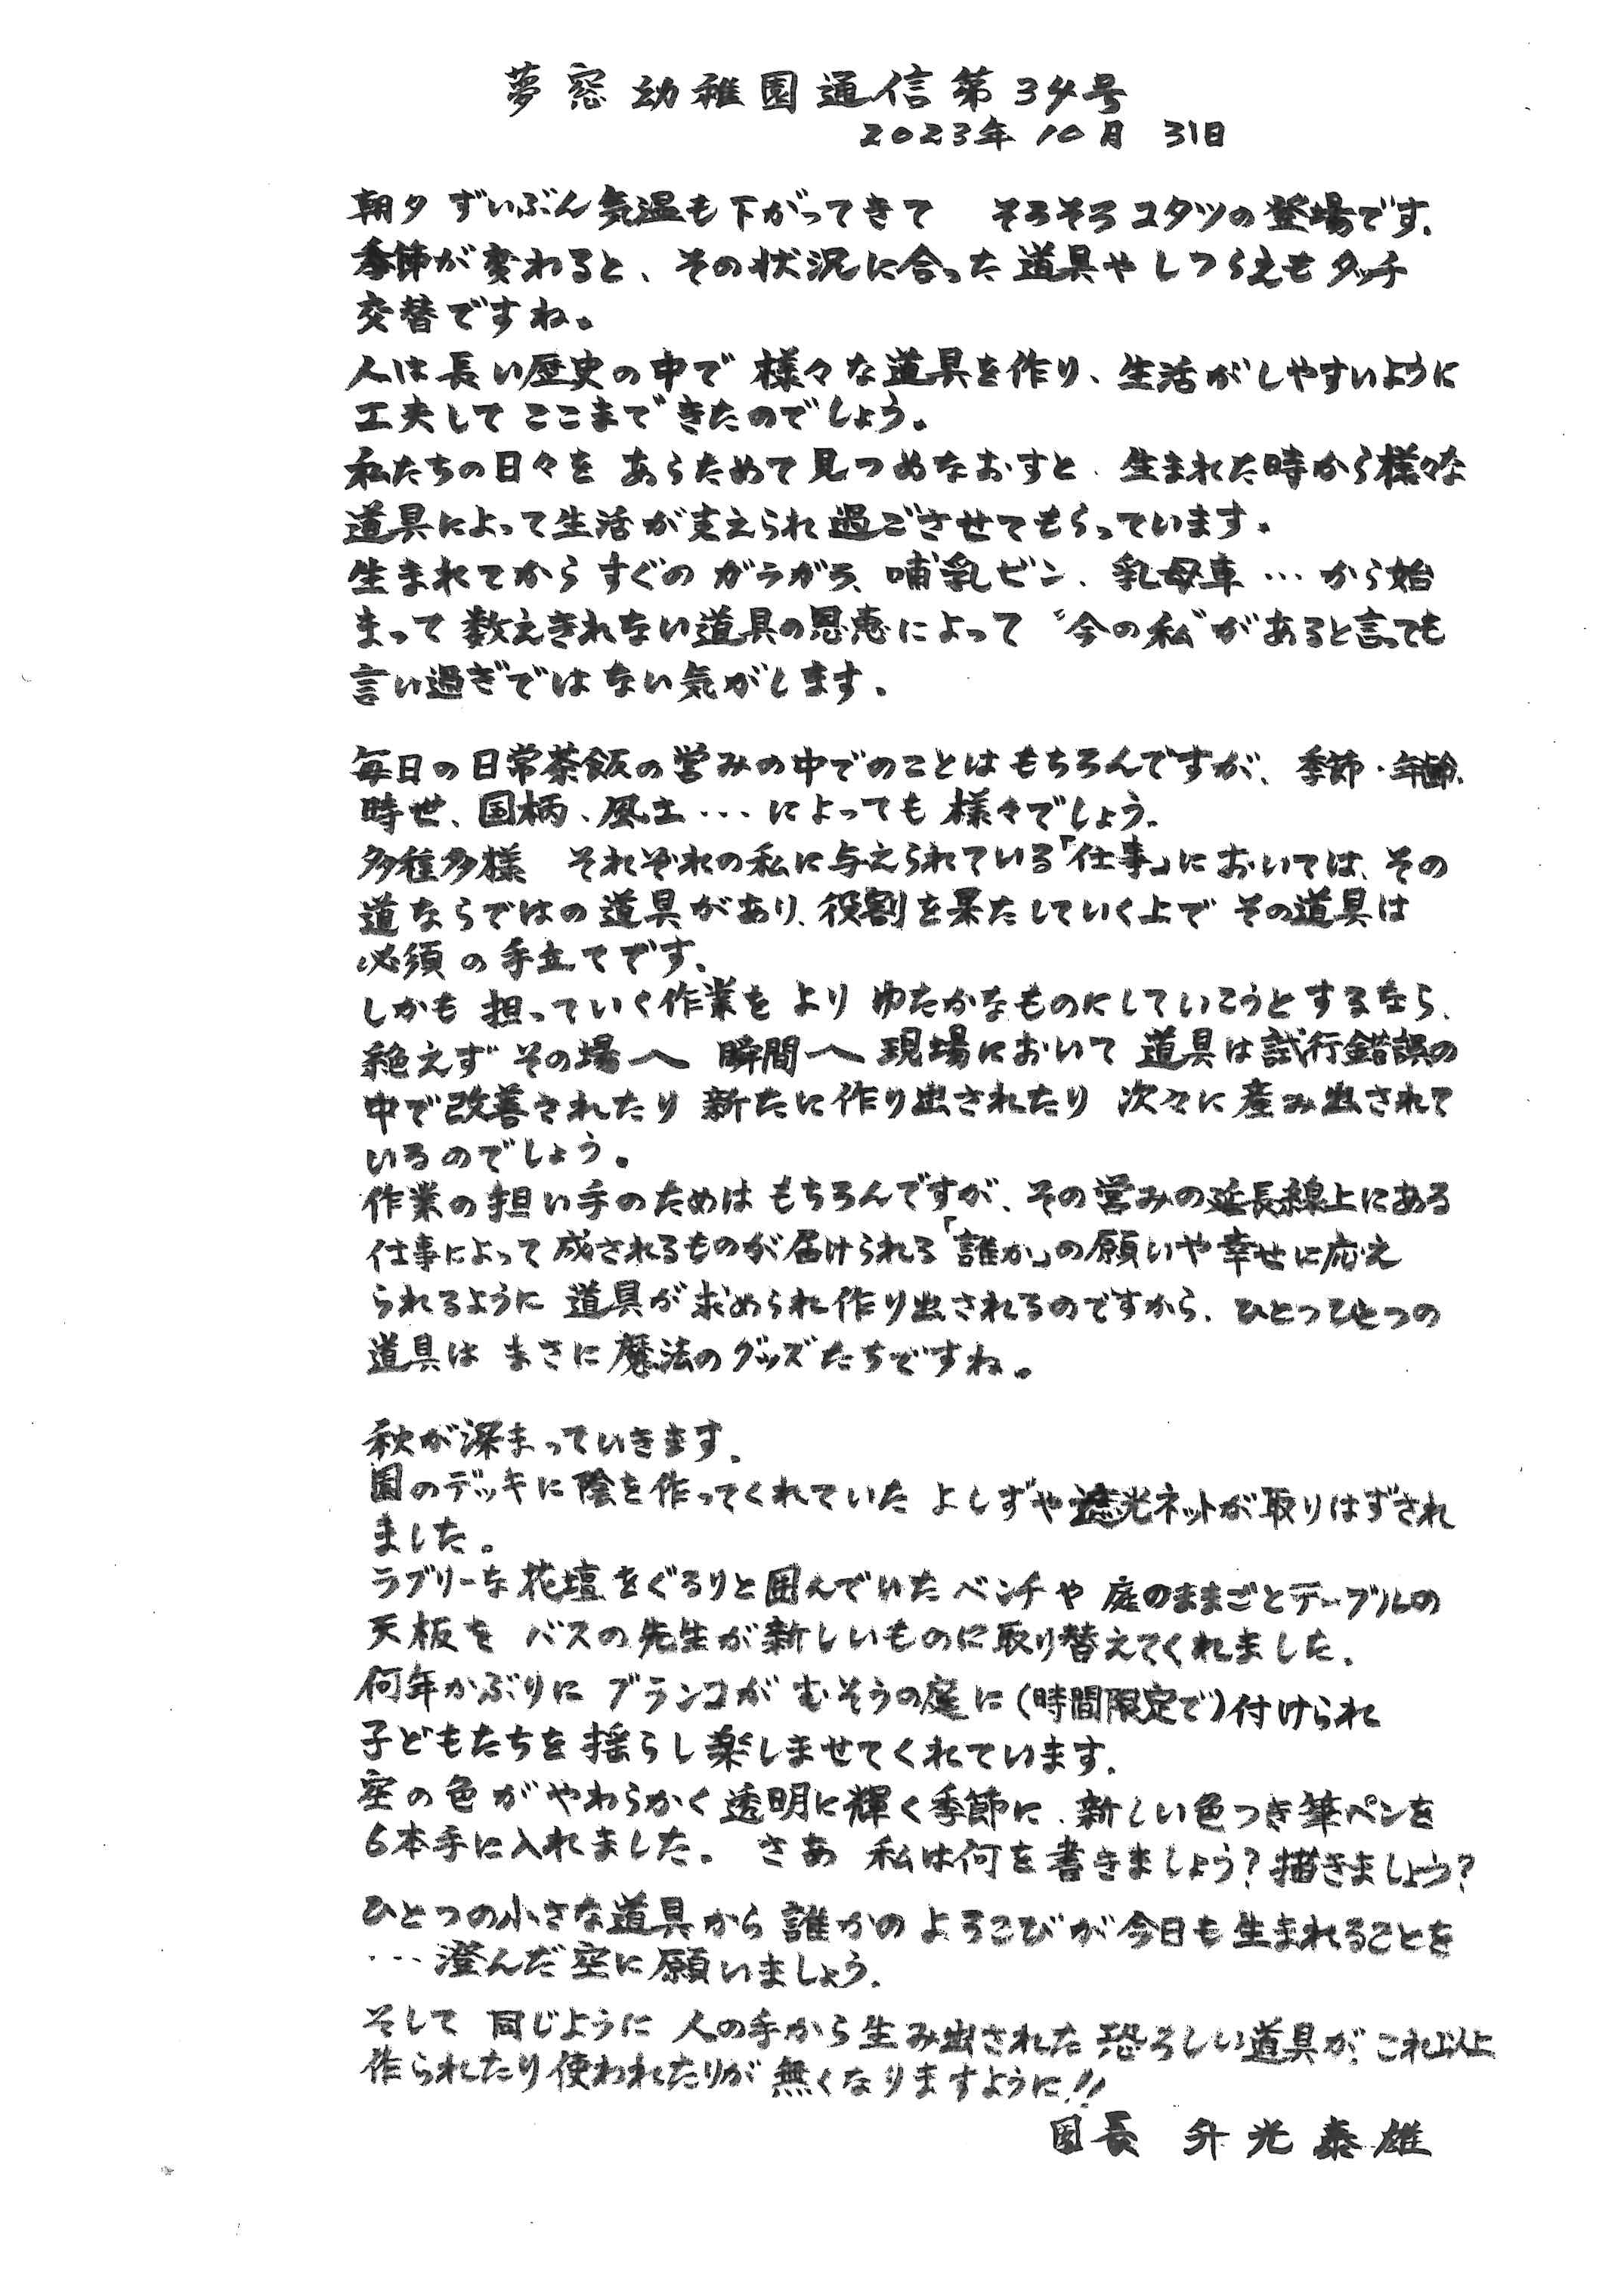 夢窓幼稚園通信第34号
2023年10月 31日
朝夕ずいぶん気温も下がってきて そろそろコタツの登場です.
季節が変わると、その状況に合った道具やしつらえもタッチ
交替ですね。
人は長い歴史の中で 様々な道具を作り、生活がしやすいように
工夫して ここまできたのでしょう。
私たちの日々を あらためて見つめなおすと、生まれた時から様々な
道具によって生活が支えられ過ごさせてもらっています。
生まれてから すぐの ガラガラ、哺乳ビン、乳母車…から始
まって 数えきれない道具の恩恵によって〝今の私〞があると言っても
言い過ぎではない気がします。
毎日の日常茶飯の営みの中でのことはもちろんですが、季節・年齢、
時世、国柄、風土…によっても様々でしょう。
多種多様 それぞれの私に与えられている「仕事」においては、その
道ならではの道具があり、役割を果たしていく上で その道具は
必須の手立てです.
しかも 担っていく作業を より ゆたかなものにしていこうとするなら、
絶えず その場へ 瞬間へ 現場において 道具は試行錯誤の
中で改善されたり 新たに作り出されたり 次々に産み出されて
いるのでしょう。
作業の担い手のためはもちろんですが、その営みの延長線上にある
仕事によって成されるものが届けられる「誰か」の願いや幸せに応え
られるように 道具が求められ作り出されるのですから、ひとつひとつの
道具は まさに魔法のグッズたちですね。
秋が深まっていきます.
園のデッキに陰を作ってくれていた よしずや遮光ネットが取りはずされ
ました。
ラブリーな花壇をぐるりと囲んでいたベンチや 庭のままごとテーブルの
天板を バスの先生が新しいものに取り替えてくれました.
何年かぶりに ブランコが むそうの庭に(時間限定で)付けられ
子どもたちを揺らし楽しませてくれています.
空の色がやわらかく透明に輝く季節に、新しい色つき筆ペンを
6本手に入れました。 さあ 私は何を書きましょう?描きましょう?
ひとつの小さな道具から 誰かのよろこびが今日も生まれることを
…澄んだ空に願いましょう.
そして 同じように 人の手から生み出された恐ろしい道具が、これ以上
作られたり使われたりが無くなりますように!!
園長 升光泰雄